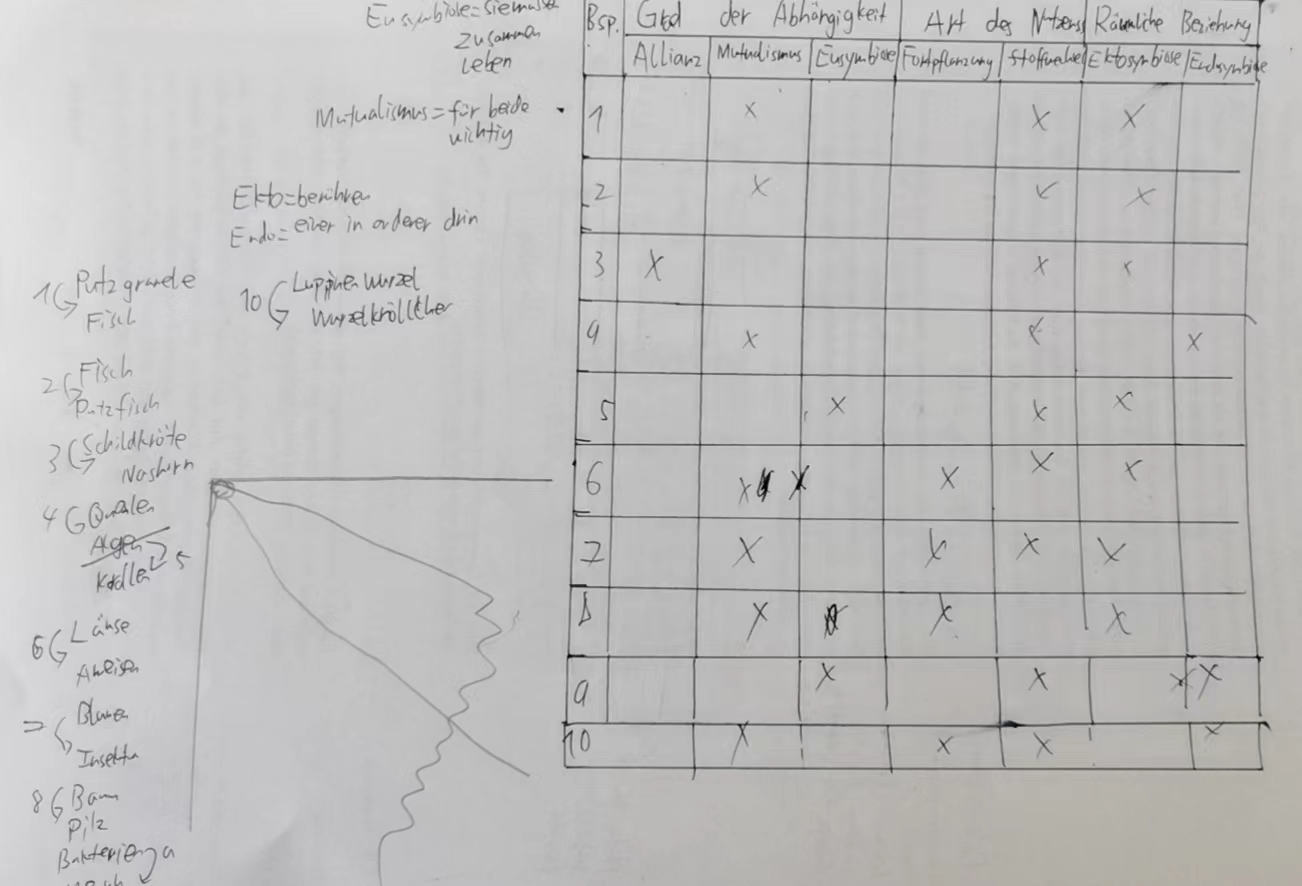 Eusymbiose = sie müssen
zusammen
leben
Mutualismus = für beide
wichtig
Ekto = berühren
Endo = einer in anderer drin
1 Putzgranele
Fisch
2 Fisch
Putzfisch
3 Schildkröte
Nashorn
4 Quallen
Algen
5
6 Läuse
Ameisen
7 Blumen
Insekten
8 Baum
Pilz
Bakterien 9
10 Luppinen Wurzel
Bsp. Grad der Abhängigkeit Art des Nutzens Räumliche Beziehung
Allianz Mutualismus Eusymbiose Fortpflanzung Stoffwechsel Ektosymbiose Endosymbiose
1 x x x
2 x x x
3 x x x
4 x x x
5 x x x
6 x x x x x
7 x x x x
8 x x x
9 x x x x
10 x x x x